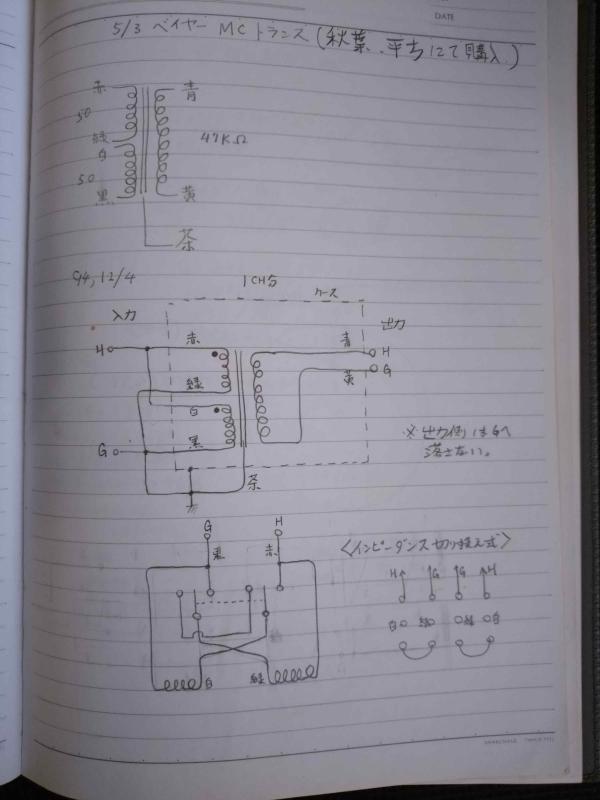 DATE
5/3 ベイヤー MCトランス(秋葉、平方にて購入)
赤 青
50
緑 47KΩ
白
50
黒 黄
茶
94, 12/4 1CH分 ケース
入力 出力
H 赤 青 H
緑 黄 G
白
G 黒
※出力側はGへ
落さない。
茶
G H
黒 赤
<インピーダンス切り換え式>
H G G H
白 緑 緑 白
白 緑